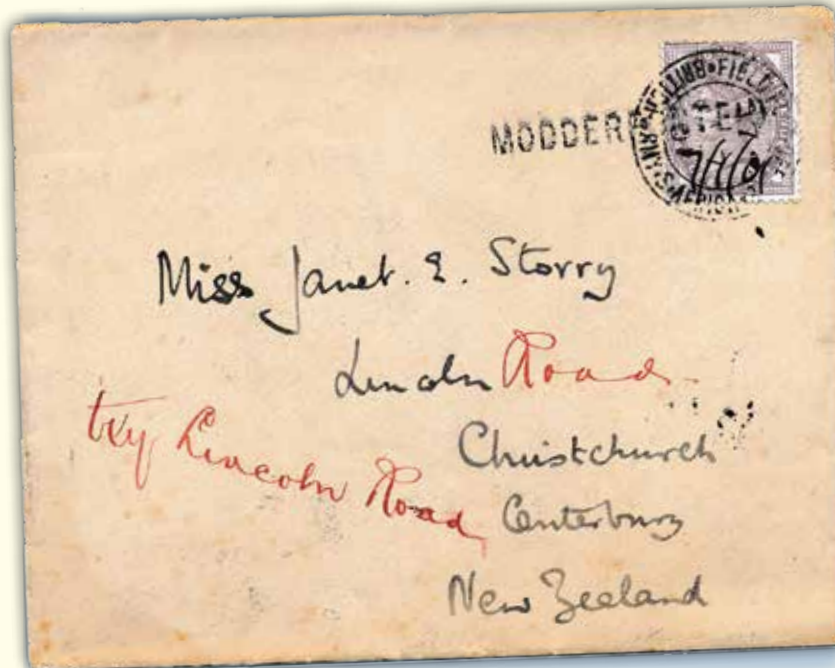 MODDER
BRITISH ARMY S. AFRICA FIELD
Miss Janet. E. Storry
Lincoln Road
try Lincoln Road
Christchurch
Canterbury
New Zealand